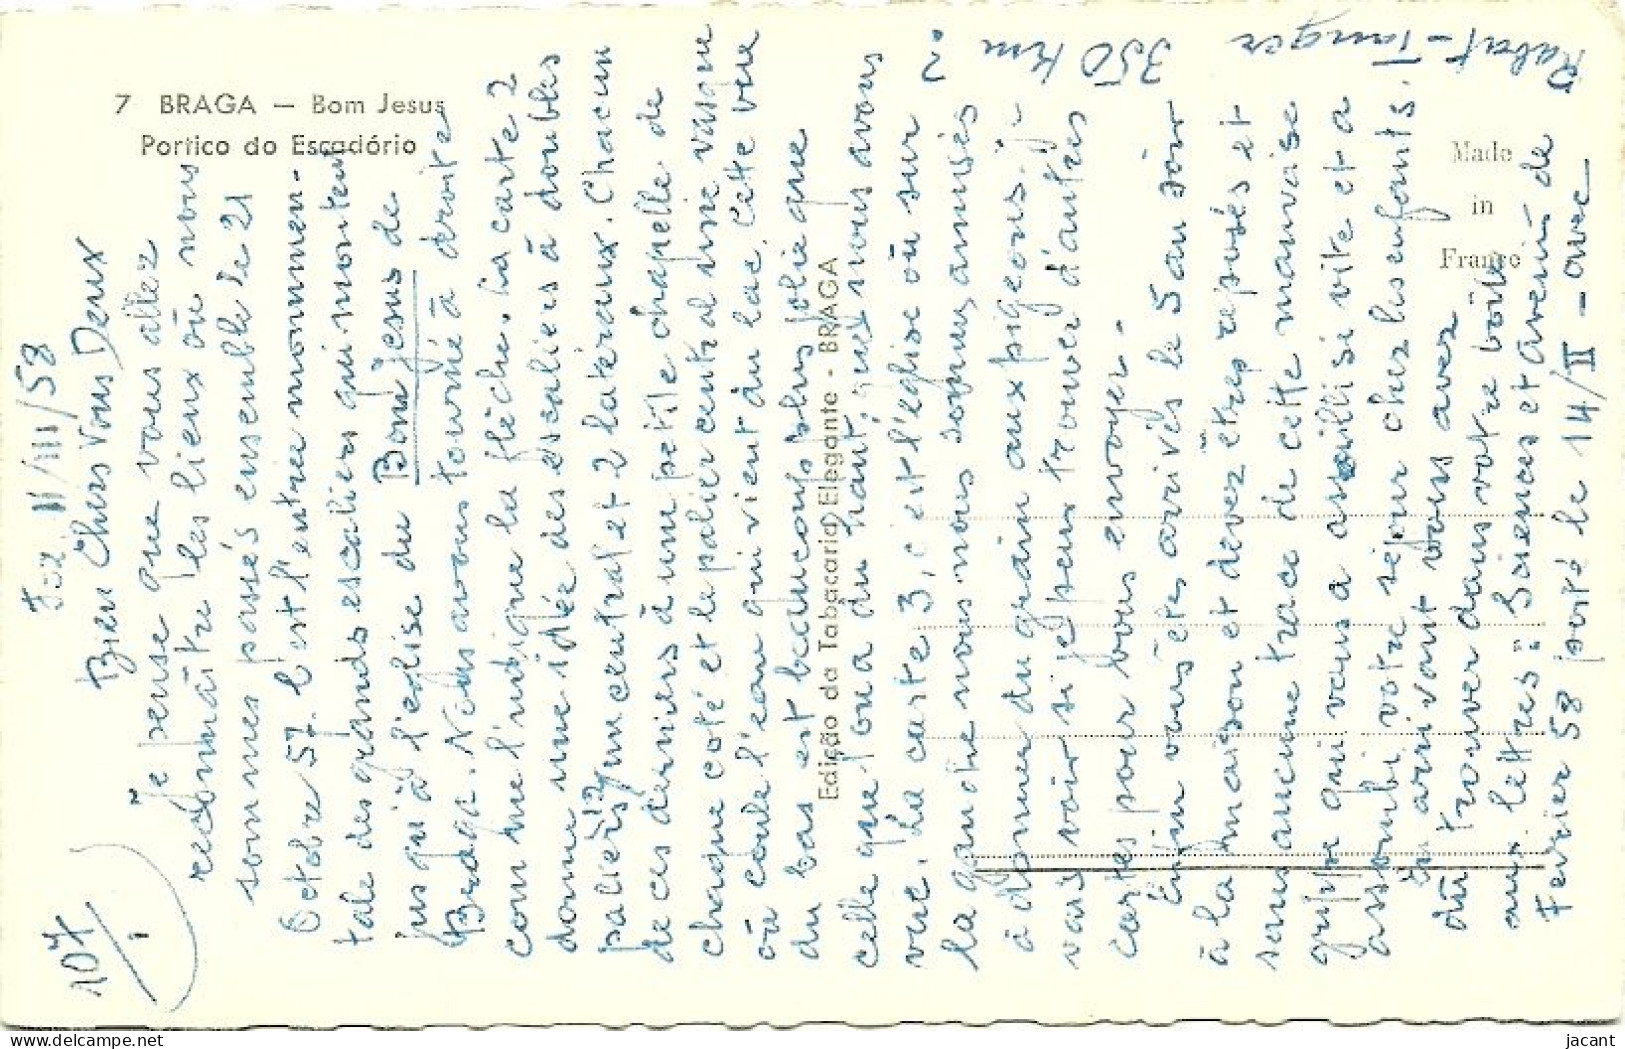 7 BRAGA — Bom Jesus
Portico do Escadório
Made
in
France
Edição da Tabacaria Elegante - BRAGA
107
1
Foz 11/III/58
Bien Chers Vous Deux
Je pense que vous allez
reconnaître les lieux où nous
sommes passés ensemble le 21
Octobre 57. C'est l'entrée monumen-
tale des grands escaliers qui montent
jusqu'à l'eglise du Bom Jesus de
Braga. Nous avons tourné à droite
comme l'indique la flèche. La carte 2
donne une idée des escaliers à doubles
paliers, un central et 2 latéraux. Chacun
de ces derniers à une petite chapelle de
chaque coté et le palier central une vasque
où coule l'eau qui vient du lac. Cette vue
du bas est beaucoup plus jolie que
celle que l'on a du haut, que nous avons
vue. La carte 3, c'est l'eglise où sur
la gauche nous nous sommes amusés
à donner du grain aux pigeons. Je
vais voir si je peux trouver d'autres
cartes pour vous envoyer.-
Enfin vous êtes arrivés le 5 au soir
à la maison et devez êtres reposés et
sans aucune trace de cette mauvaise
grippe qui vous a assailli si vite et a
assombri votre séjour chez les enfants.
En arrivant vous avez
dû trouver dans votre boîte
aux lettres "Sciences et Avenir" de
Fevrier 58 posté le 14/II - avec
Rabat-Tanger 350 km ?
jacant